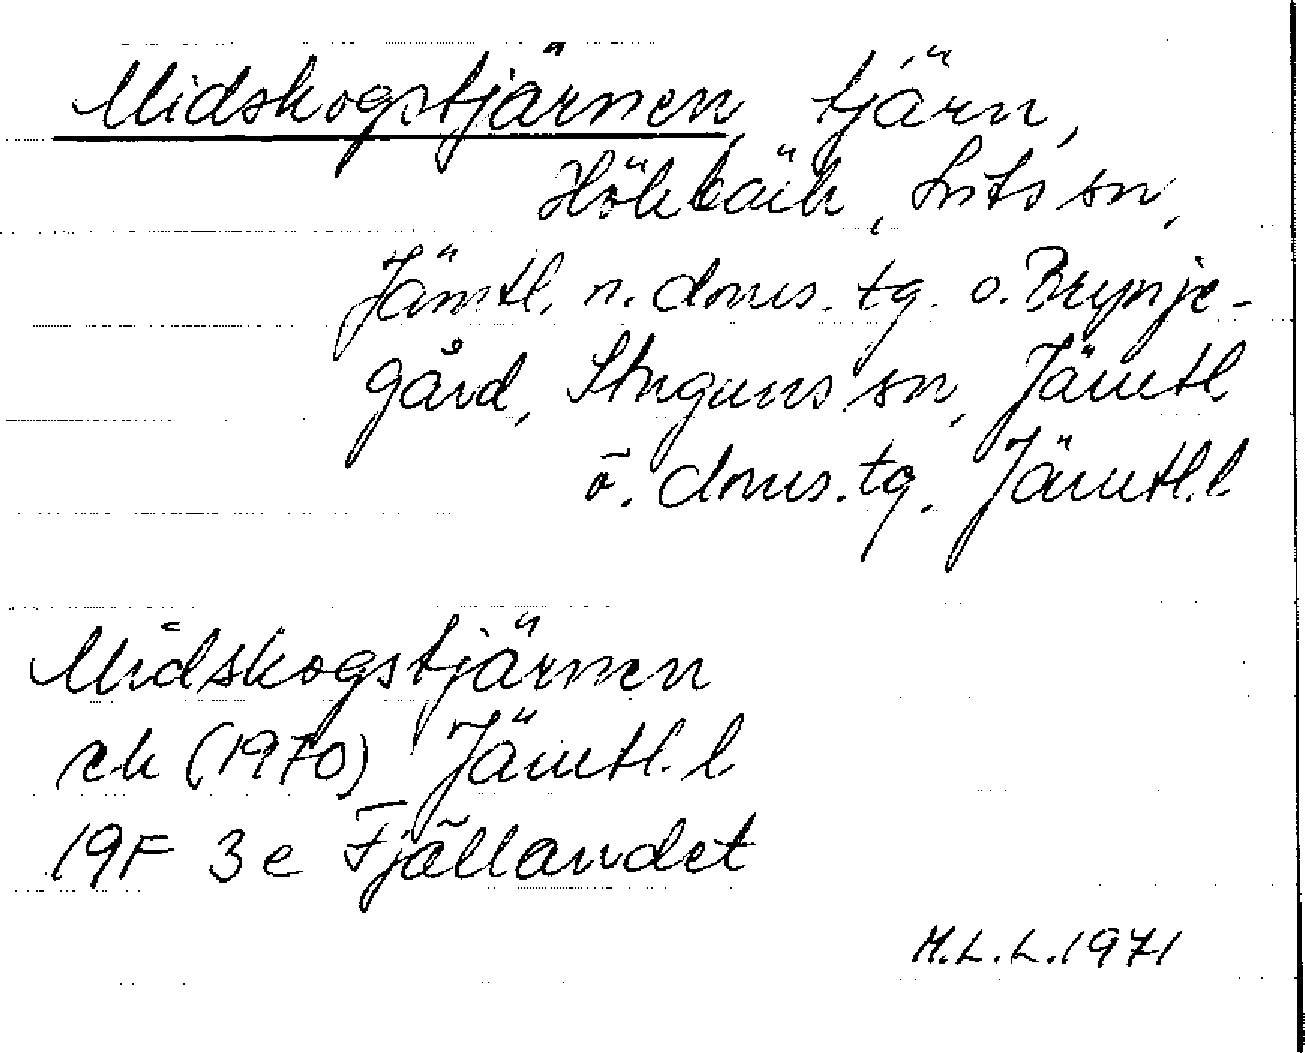 Midskogstjärnen, tjärn,
Hökbäck, Lits sn,
Jämtl. n. doms. tg. o. Brynje-
gård, Stuguns sn, Jämtl
ö. doms. tg. Jämtl. l
Midskogstjärnen
ek (1970) Jämtl. l
19F 3e Fjällandet
M.L.L. 1971